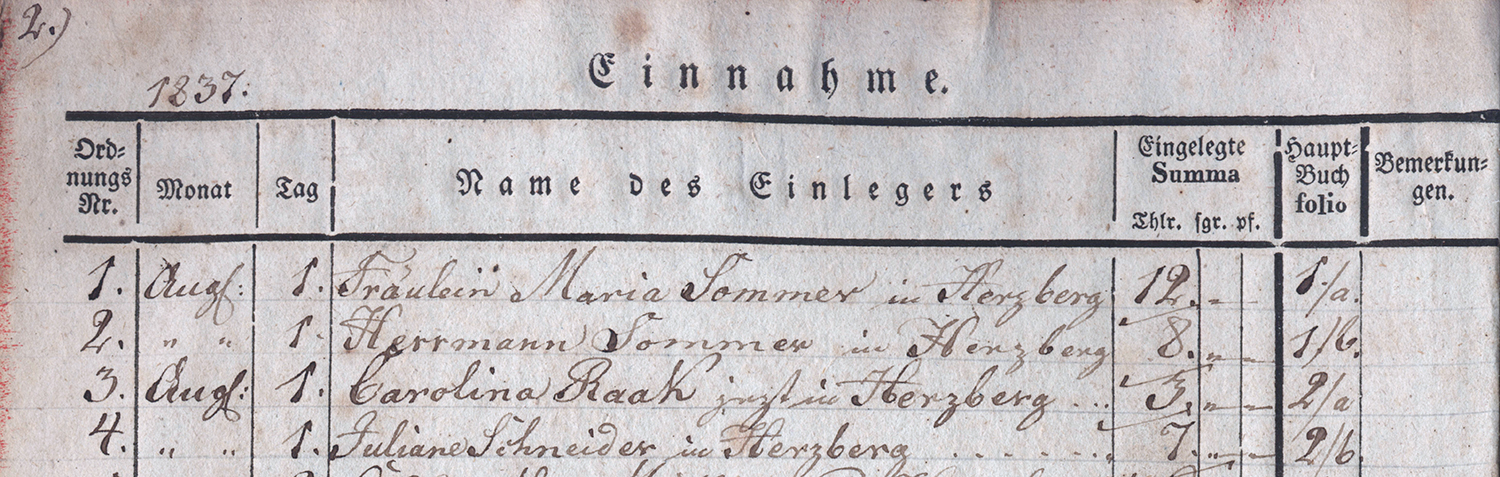 2.)
1837.
Einnahme.
Ord-
nungs
Nr.
Monat
Tag
Name des Einlegers
Eingelegte
Summa
Thlr. sgr. pf.
Haupt-
Buch
folio
Bemerkun-
gen.
1. Augs: 1. Fräulein Maria Sommer in Herzberg 12. „ – 1/a.
2. „ „ 1. Herrmann Sommer in Herzberg 8. „ – 1/b.
3. Augs: 1. Carolina Raak jezt in Herzberg ... 3. „ – 2/a
4. „ „ 1. Juliane Schneider in Herzberg ...... 7. „ – 2/b.